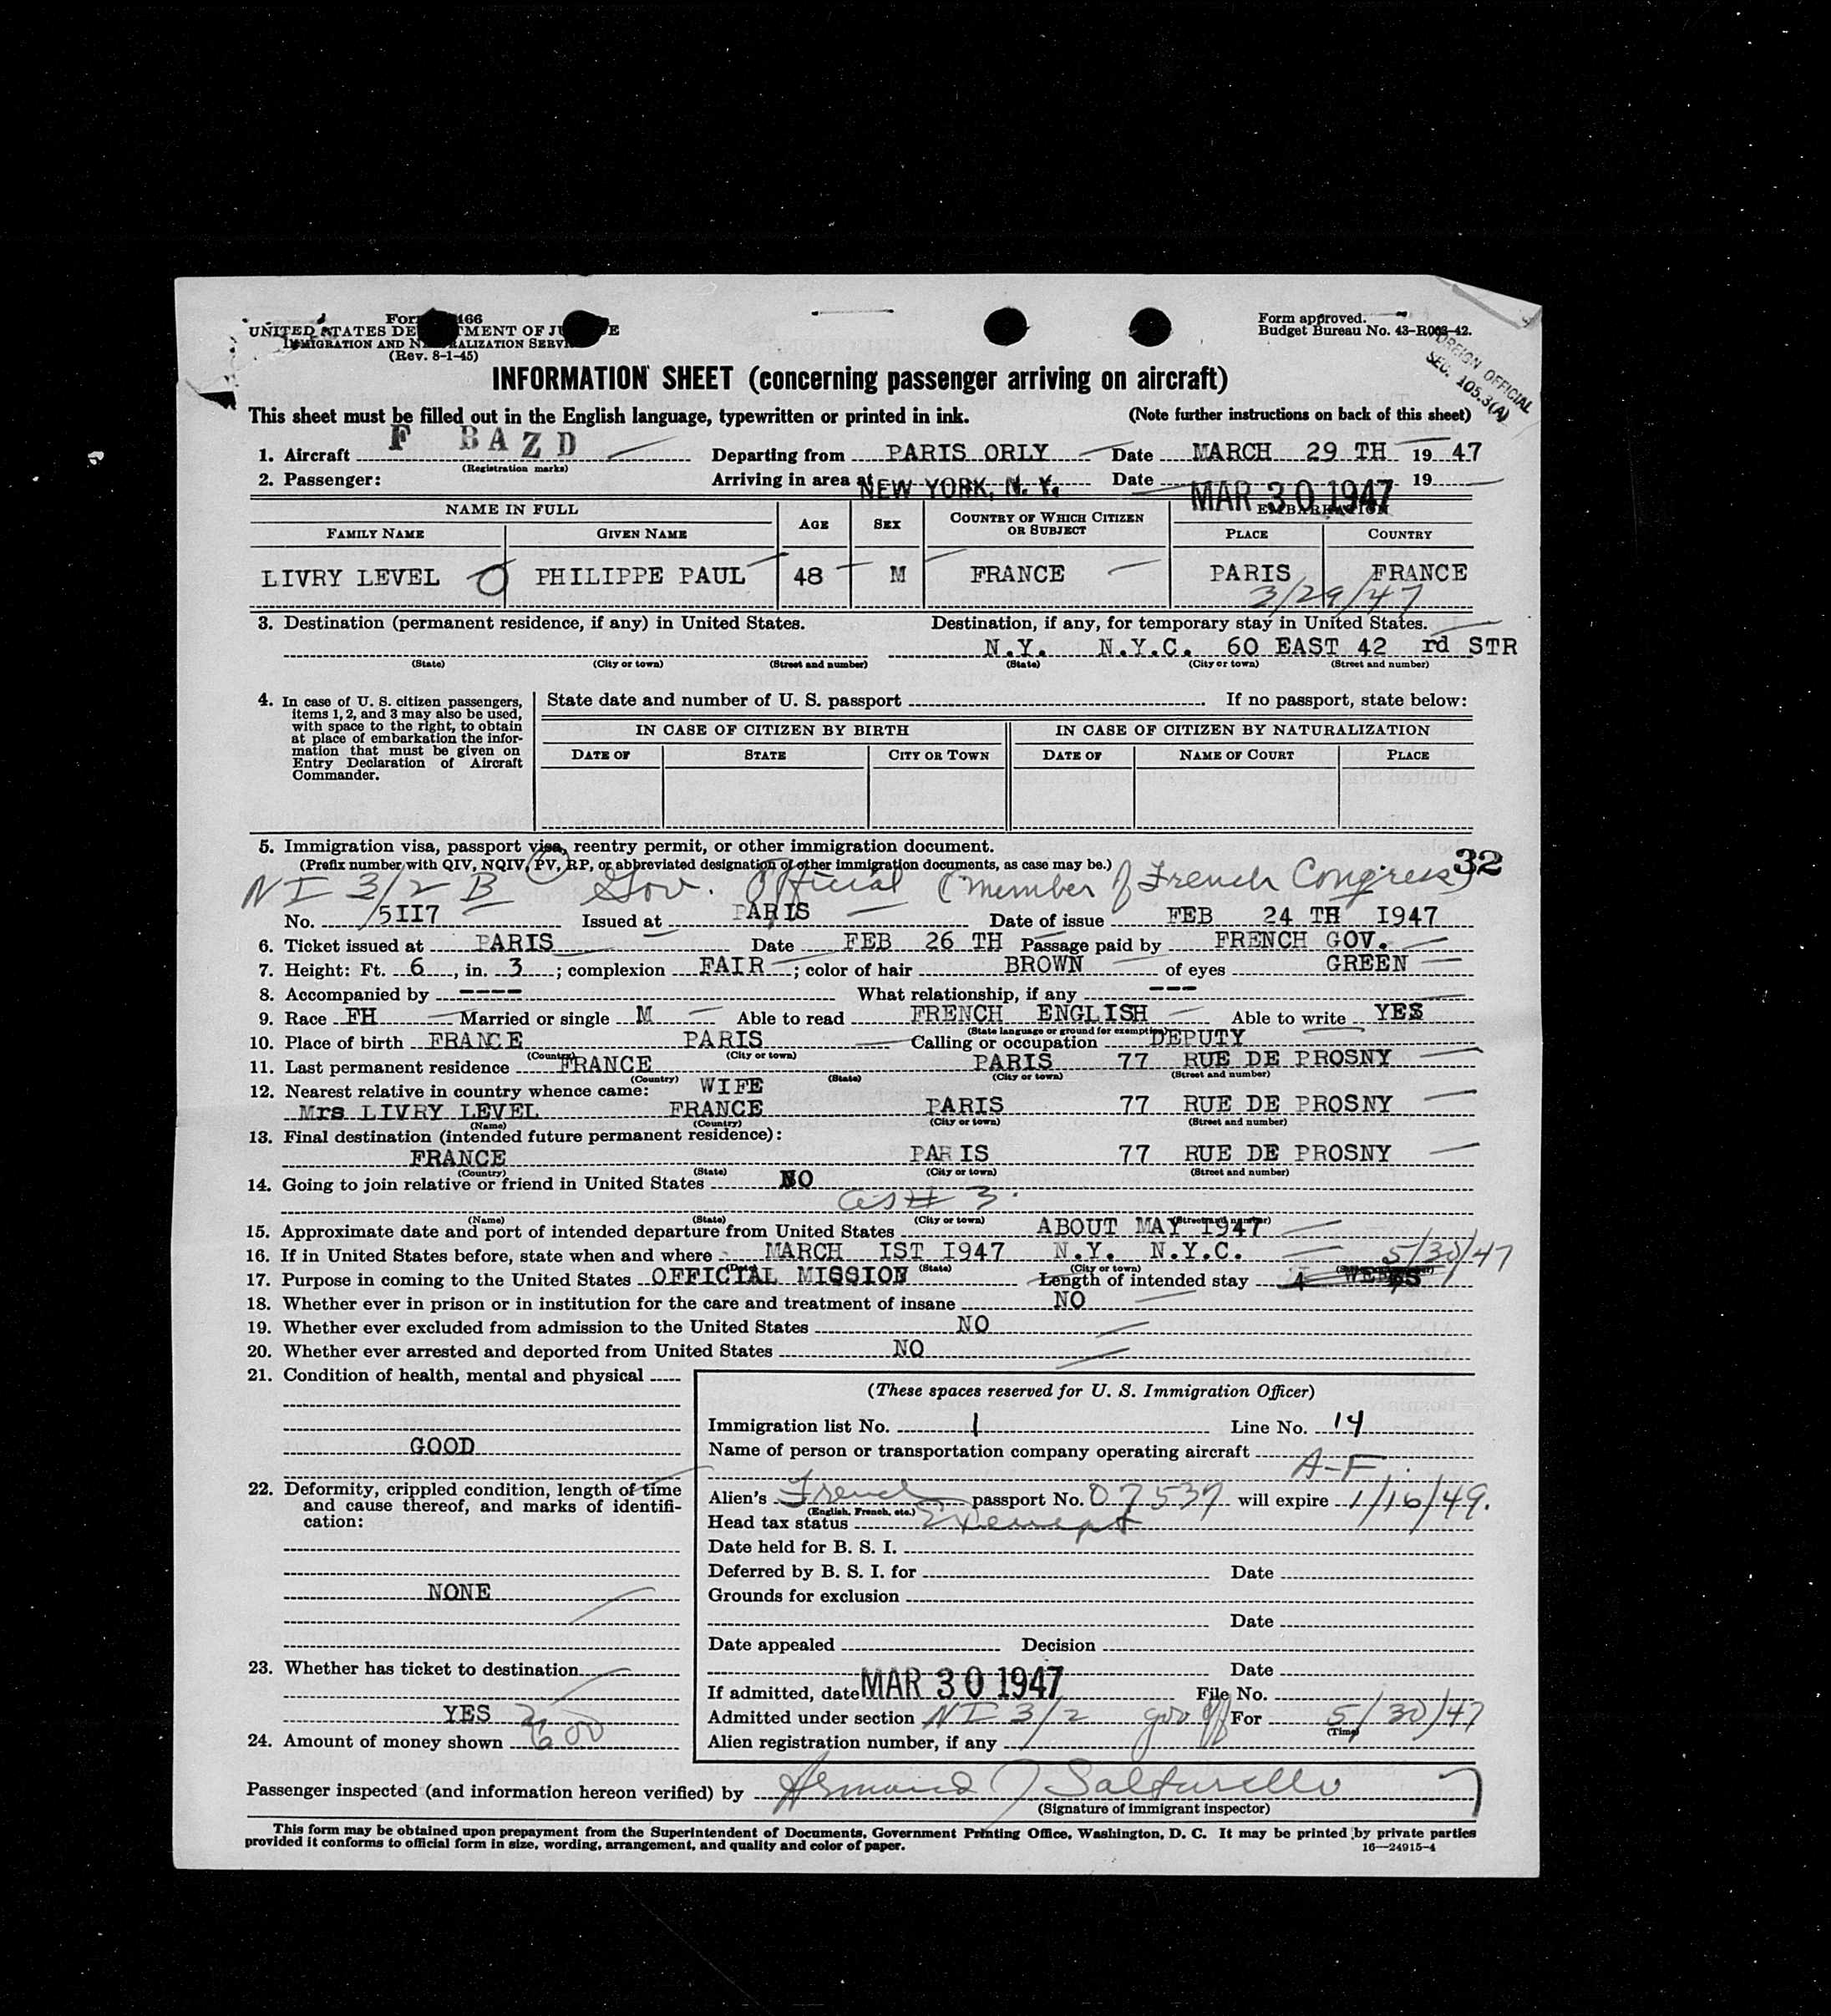 Form 166
UNITED STATES DE TMENT OF JU E
IMMIGRATION AND N RALIZATION SERVI
(Rev. 8-1-45)
Form approved.
Budget Bureau No. 43-R063-42.
FOREIGN OFFICIAL
SEC. 105.3(A)
INFORMATION SHEET (concerning passenger arriving on aircraft)
This sheet must be filled out in the English language, typewritten or printed in ink. (Note further instructions on back of this sheet)
1. Aircraft F BAZD Departing from PARIS ORLY Date MARCH 29 TH 19 47
(Registration marks)
2. Passenger: Arriving in area at NEW YORK, N. Y. Date MAR 30 1947 19
NAME IN FULL AGE SEX COUNTRY OF WHICH CITIZEN OR SUBJECT EMBARKATION
FAMILY NAME GIVEN NAME PLACE COUNTRY
LIVRY LEVEL PHILIPPE PAUL 48 M FRANCE PARIS FRANCE
3/29/47
3. Destination (permanent residence, if any) in United States. Destination, if any, for temporary stay in United States.
N.Y. N.Y.C. 60 EAST 42 rd STR
(State) (City or town) (Street and number) (State) (City or town) (Street and number)
4. In case of U. S. citizen passengers, items 1, 2, and 3 may also be used, with space to the right, to obtain at place of embarkation the information that must be given on Entry Declaration of Aircraft Commander.
State date and number of U. S. passport If no passport, state below:
IN CASE OF CITIZEN BY BIRTH IN CASE OF CITIZEN BY NATURALIZATION
DATE OF STATE CITY OR TOWN DATE OF NAME OF COURT PLACE
5. Immigration visa, passport visa, reentry permit, or other immigration document.
(Prefix number with QIV, NQIV, PV, RP, or abbreviated designation of other immigration documents, as case may be.) 32
NI 3/2 B Gov. Official (Member of French Congress)
No. 5II7 Issued at PARIS Date of issue FEB 24 TH I947
6. Ticket issued at PARIS Date FEB 26 TH Passage paid by FRENCH GOV.
7. Height: Ft. 6, in. 3; complexion FAIR; color of hair BROWN of eyes GREEN
8. Accompanied by ---- What relationship, if any ---
9. Race FH Married or single M Able to read FRENCH ENGLISH Able to write YES
(State language or ground for exemption)
10. Place of birth FRANCE PARIS Calling or occupation DEPUTY
(Country) (City or town)
11. Last permanent residence FRANCE PARIS 77 RUE DE PROSNY
(Country) (State) (City or town) (Street and number)
12. Nearest relative in country whence came: WIFE
Mrs LIVRY LEVEL FRANCE PARIS 77 RUE DE PROSNY
(Name) (Country) (City or town) (Street and number)
13. Final destination (intended future permanent residence):
FRANCE PARIS 77 RUE DE PROSNY
(Country) (State) (City or town) (Street and number)
14. Going to join relative or friend in United States NO
as # 3.
(Name) (State) (City or town) (Street and number)
15. Approximate date and port of intended departure from United States ABOUT MAY 1947
16. If in United States before, state when and where MARCH IST I947 N.Y. N.Y.C. 5/30/47
(Date) (State) (City or town)
17. Purpose in coming to the United States OFFICIAL MISSION Length of intended stay 4 WEEKS
18. Whether ever in prison or in institution for the care and treatment of insane NO
19. Whether ever excluded from admission to the United States NO
20. Whether ever arrested and deported from United States NO
21. Condition of health, mental and physical
GOOD
22. Deformity, crippled condition, length of time and cause thereof, and marks of identification:
NONE
23. Whether has ticket to destination
YES
24. Amount of money shown 600
(These spaces reserved for U. S. Immigration Officer)
Immigration list No. 1 Line No. 14
Name of person or transportation company operating aircraft
A-F.
Alien's French passport No. 07537 will expire 1/16/49.
(English, French, etc.)
Head tax status Exempt
Date held for B. S. I.
Deferred by B. S. I. for Date
Grounds for exclusion
Date
Date appealed Decision
Date
If admitted, date MAR 30 1947 File No.
Admitted under section NI 3/2 gov off For 5/30/47
(Time)
Alien registration number, if any
Passenger inspected (and information hereon verified) by Armand J Salturello
(Signature of immigrant inspector)
This form may be obtained upon prepayment from the Superintendent of Documents, Government Printing Office, Washington, D. C. It may be printed by private parties
provided it conforms to official form in size, wording, arrangement, and quality and color of paper. 16—24915-4